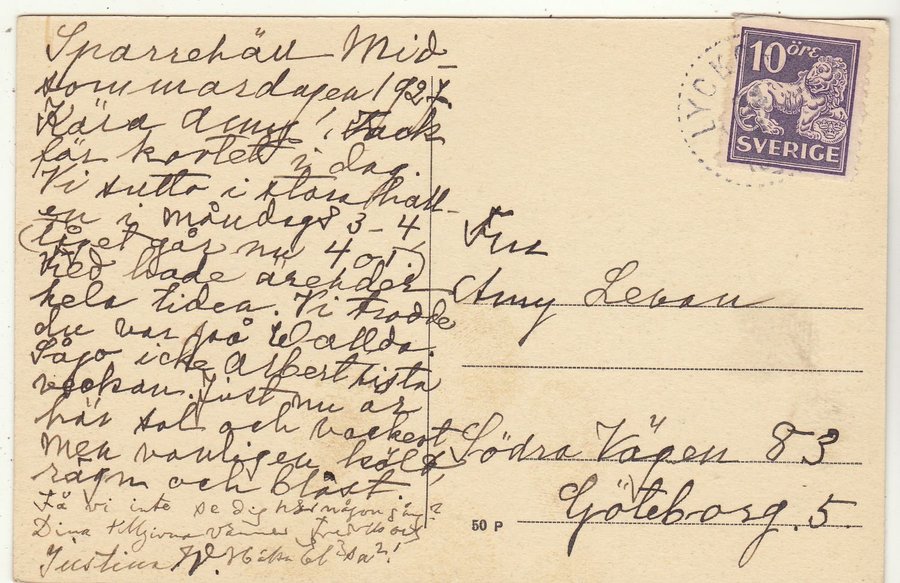 Sparrehäll Mid-
sommardagen 1927.
Kära Amy! Tack
för kortet i dag.
Vi sutto i stora hall-
en i måndags 3-4
(tåget går nu 4 05)
Med hade ärender
hela tiden. Vi trodde
du var på Wallda.
Sågo icke Albert sista
veckan. Just nu är
här sol och vackert
men vanligen köld,
rägn och blåst.
Få vi inte se dig här någon gång?
Dina tillgivna vänner
Justina W. Hälsa
10 öre
SVERIGE
LYCK
Fru
Amy Levau
Södra Vägen 83
Göteborg. 5.
50 P